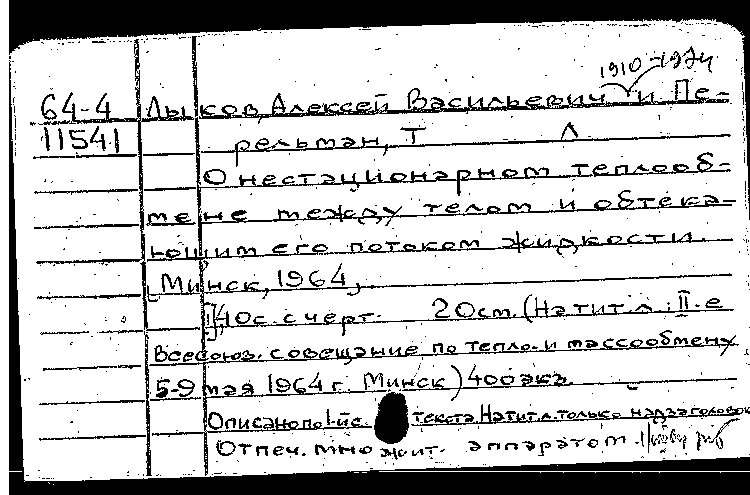 1910-1974
64-4 Лыков, Алексей Васильевич и Пе-
11541 рельман, Т Л
О нестационарном теплооб-
мене между телом и обтека-
ющим его потоком жидкости.
[Минск, 1964].
40с. с черт. 20см. (На тит. л.: II-е
Всесоюз. совещание по тепло- и массообмену.
5-9 мая 1964 г. Минск) 400 экз.
Описано по 1-й с. текста. На тит. л. только надзаголовок
Отпеч. множит. аппаратом.